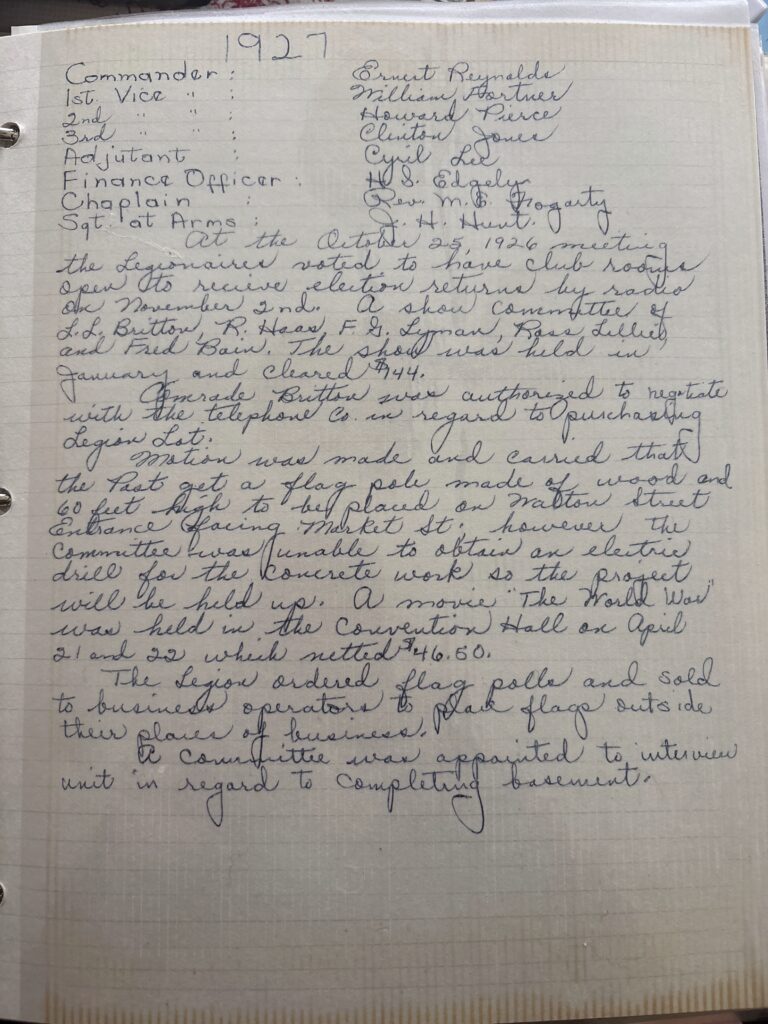 1927
Commander : Ernest Reynolds
1st. Vice " : William Fortner
2nd " " : Howard Pierce
3rd " " : Clinton Jones
Adjutant : Cyril Lee
Finance Officer : H. S. Edgely
Chaplain : Rev. M. E. Fogarty
Sgt. at Arms : J. H. Hunt.
At the October 25, 1926 meeting
the Legionaires voted to have club rooms
open to recieve election returns by radio
on November 2nd. A show committee of
L.L. Britton, R. Haas, F. G. Lyman, Ross Lillie,
and Fred Bain. The show was held in
January and cleared $744.
Comrade Britton was authorized to negotiate
with the telephone Co. in regard to purchasing
Legion Lot.
Motion was made and carried that
the Post get a flag pole made of wood and
60 feet high to be placed on Walton Street
Entrance facing Market St. however the
Committee was unable to obtain an electric
drill for the concrete work so the project
will be held up. A movie "The World War"
was held in the Convention Hall on April
21 and 22 which netted $46.50.
The Legion ordered flag polls and sold
to business operators to place flags outside
their places of business.
A committee was appointed to interview
unit in regard to completing basement.